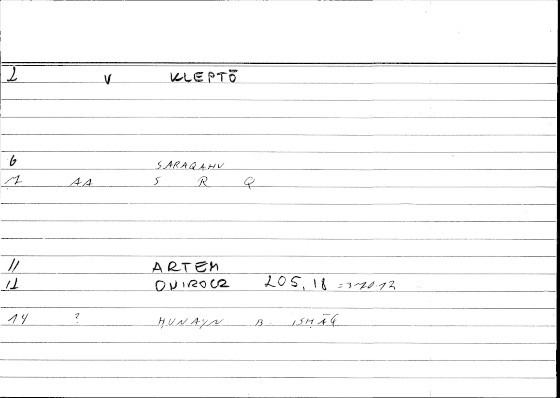 2 V KLEPTŌ
6 SARAQAHU
7 AA S R Q
11 ARTEM
12 ONIROCR 205, 18
14 ? ḤUNAYN B. ISḤĀQ